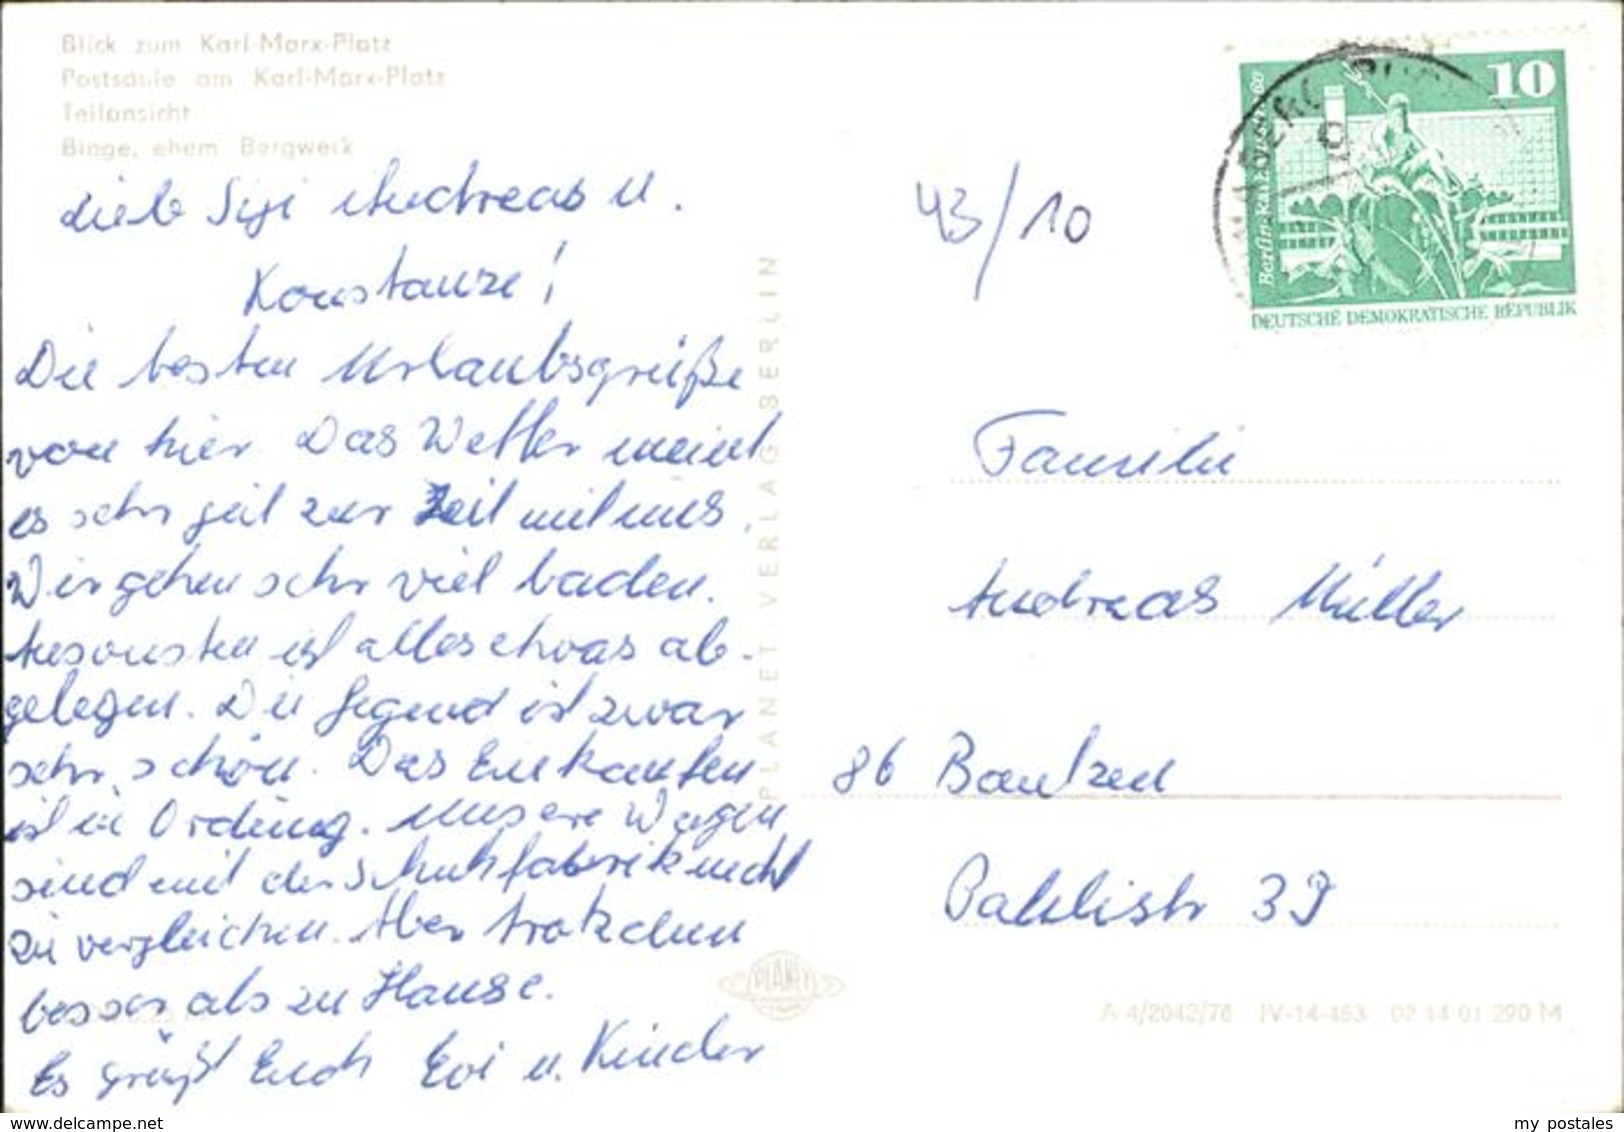 Blick zum Karl-Marx-Platz
Postsäule am Karl-Marx-Platz
Teilansicht
Binge, ehem. Bergwerk
Liebe Sigi Andreas u.
Konstanze!
Die besten Urlaubsgrüße
von hier. Das Wetter meint
es sehr gut zur Zeit mit uns.
Wir gehen sehr viel baden.
Ansonsten ist alles etwas ab-
gelegen. Die Gegend ist zwar
sehr schön. Das Einkaufen
ist in Ordnung. Unsere Wagen
sind mit der Schuhfabrik nicht
zu vergleichen. Aber trotzdem
besser als zu Hause.
Es grüßt Euch Evi u. Kinder
PLANET VERLAG BERLIN
PLANET
43/10
10
Berlin
DEUTSCHE DEMOKRATISCHE REPUBLIK
Familie
Andreas Müller
86 Bautzen
39
A 4/2042/76 IV-14-483 02 14 01 290 M
www.delcampe.net
my_postales